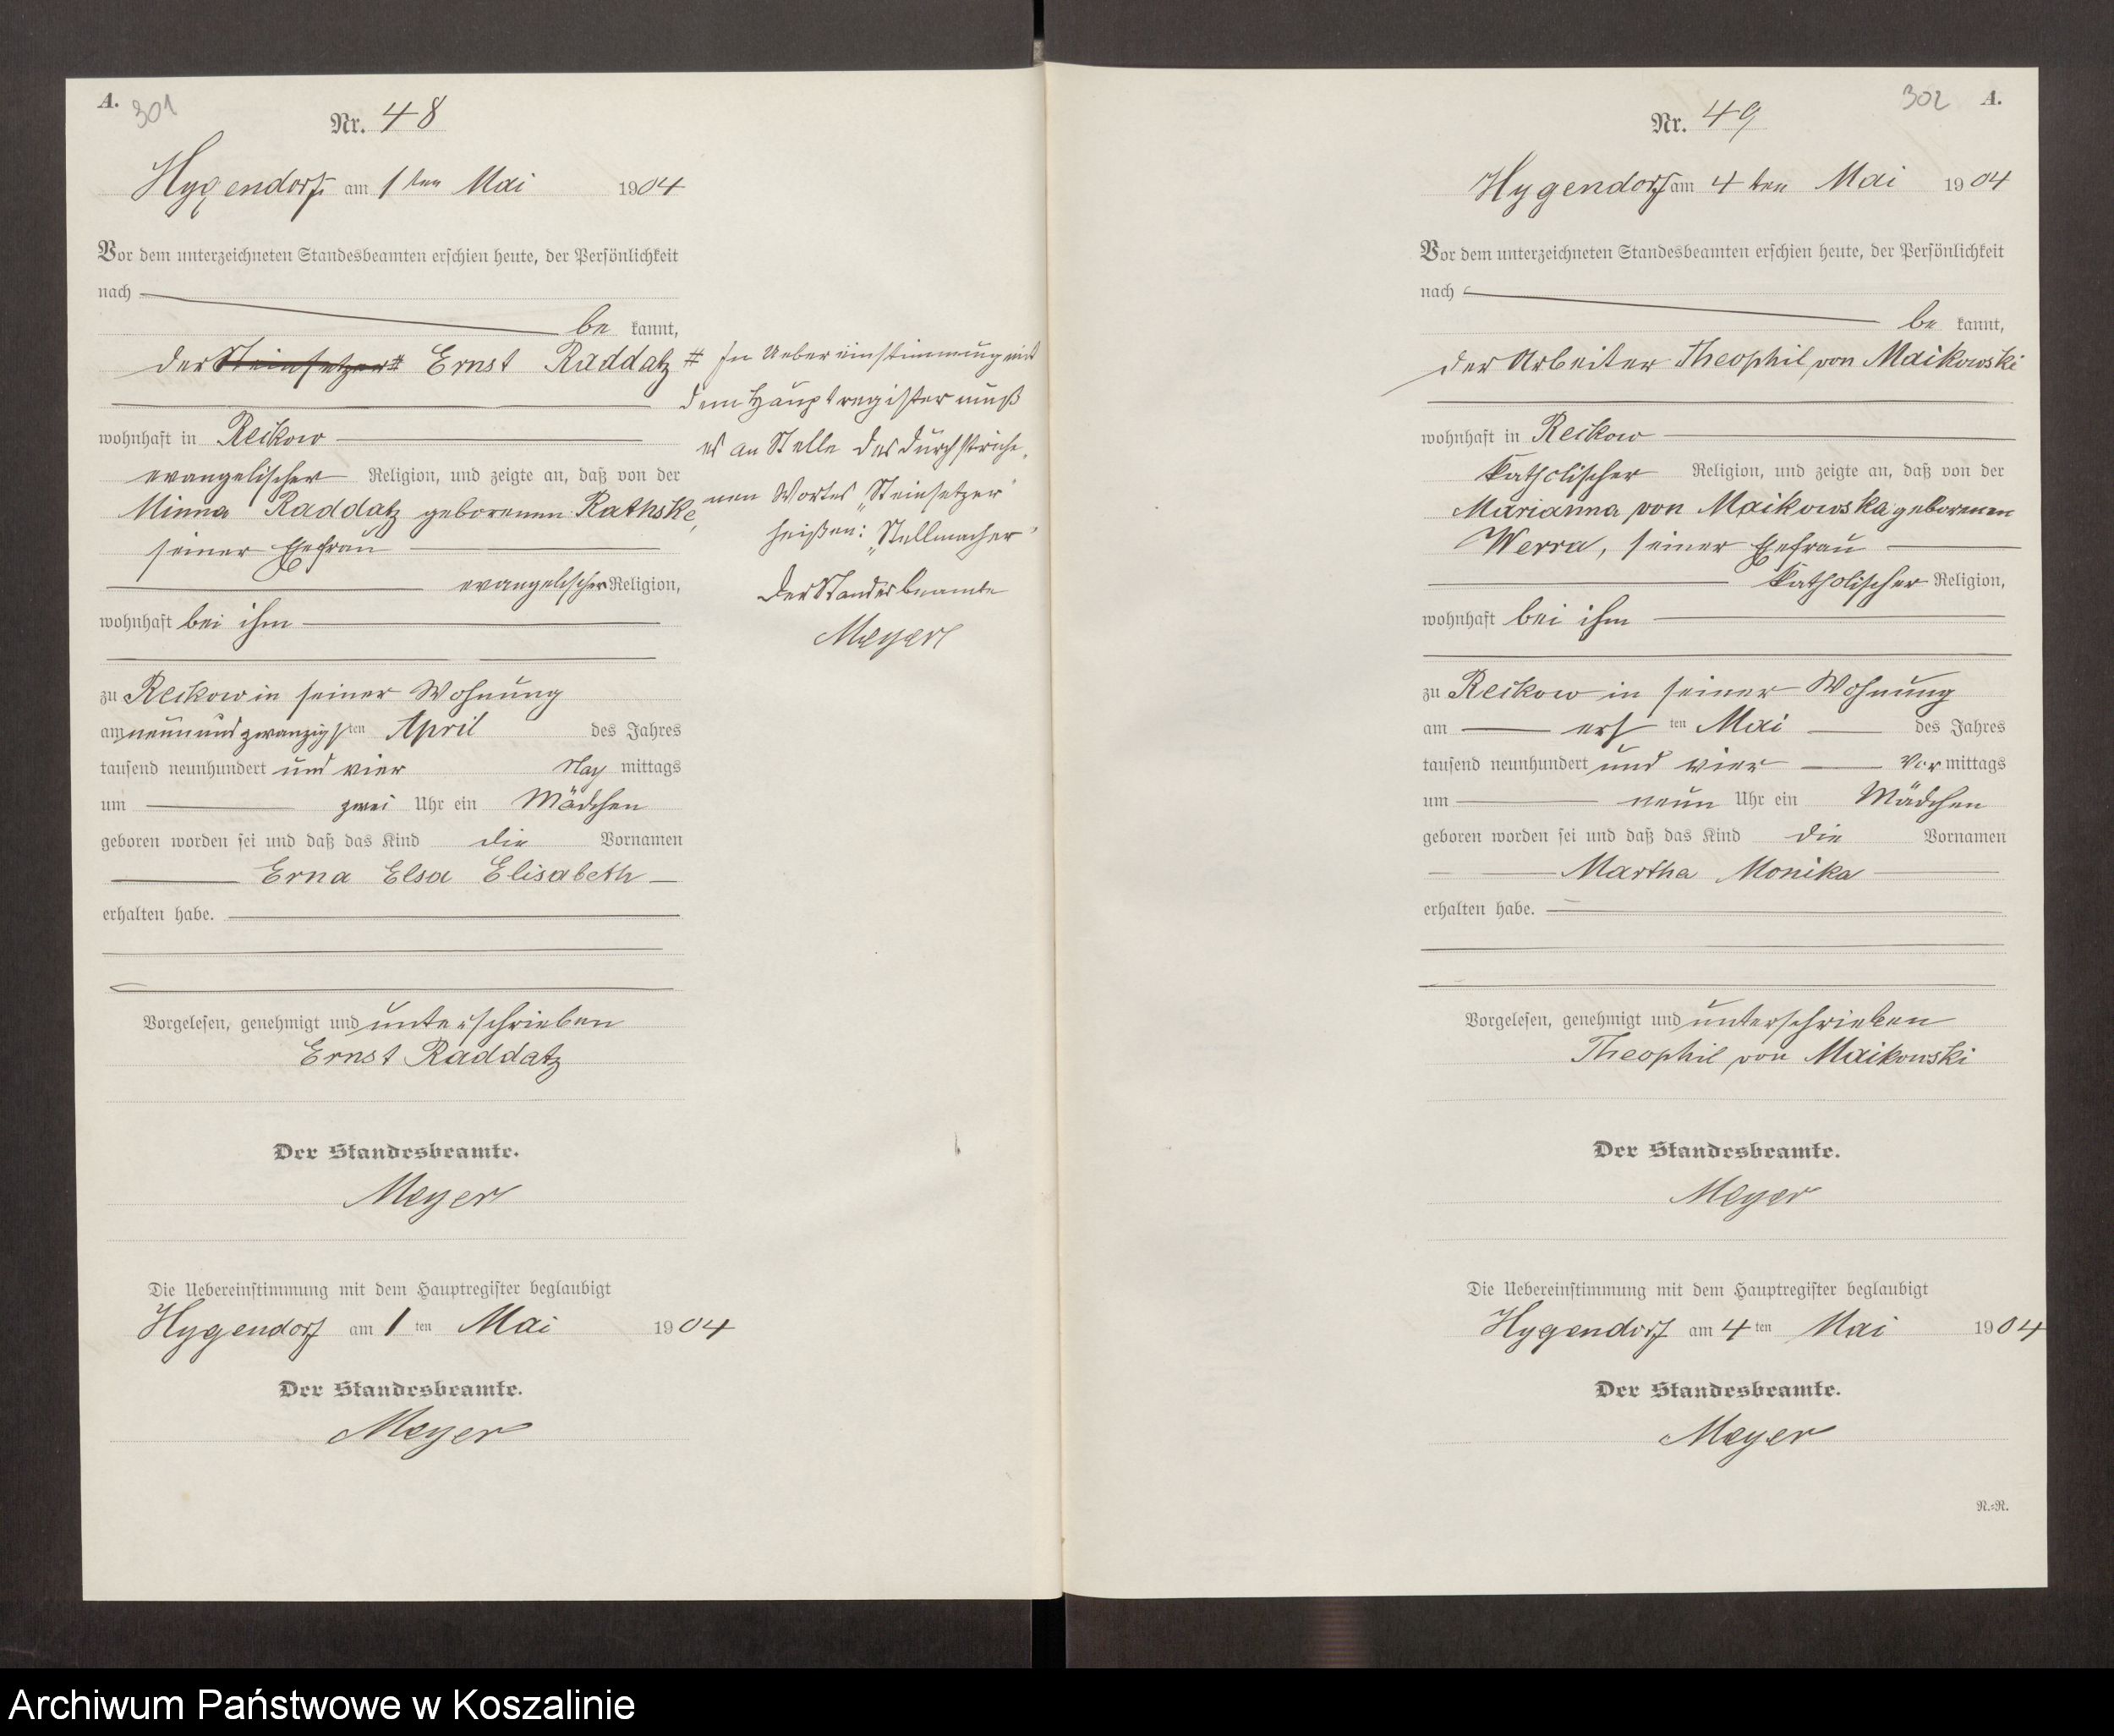 A.
301
Nr. 48
Hygendorf am 1ten Mai 1904
Vor dem unterzeichneten Standesbeamten erschien heute, der Persönlichkeit
nach
be kannt,
der Steinsetzer # Ernst Raddatz
wohnhaft in Reikow
evangelischer Religion, und zeigte an, daß von der
Minna Raddatz geborenen Rathske,
seiner Ehefrau
evangelischer Religion,
wohnhaft bei ihm
zu Reikow in seiner Wohnung
am neunundzwanzigsten April des Jahres
tausend neunhundert und vier Nach mittags
um zwei Uhr ein Mädchen
geboren worden sei und daß das Kind die Vornamen
Erna Elsa Elisabeth
erhalten habe.
Vorgelesen, genehmigt und unterschrieben
Ernst Raddatz
Der Standesbeamte.
Meyer
Die Uebereinstimmung mit dem Hauptregister beglaubigt
Hygendorf am 1 ten Mai 1904
Der Standesbeamte.
Meyer
# In Uebereinstimmung mit
dem Hauptregister muß
es an Stelle des durchstriche-
nen Wortes "Steinsetzer"
heißen: "Stellmacher"
Der Standesbeamte
Meyer
302 A.
Nr. 49
Hygendorf am 4 ten Mai 1904
Vor dem unterzeichneten Standesbeamten erschien heute, der Persönlichkeit
nach
be kannt,
der Arbeiter Theophil von Maikowski
wohnhaft in Reikow
katholischer Religion, und zeigte an, daß von der
Marianna von Maikowska geborenen
Werra, seiner Ehefrau
katholischer Religion,
wohnhaft bei ihm
zu Reikow in seiner Wohnung
am ersten Mai des Jahres
tausend neunhundert und vier Vor mittags
um neun Uhr ein Mädchen
geboren worden sei und daß das Kind die Vornamen
Martha Monika
erhalten habe.
Vorgelesen, genehmigt und unterschrieben
Theophil von Maikowski
Der Standesbeamte.
Meyer
Die Uebereinstimmung mit dem Hauptregister beglaubigt
Hygendorf am 4 ten Mai 1904
Der Standesbeamte.
Meyer
R.-R.
Archiwum Państwowe w Koszalinie